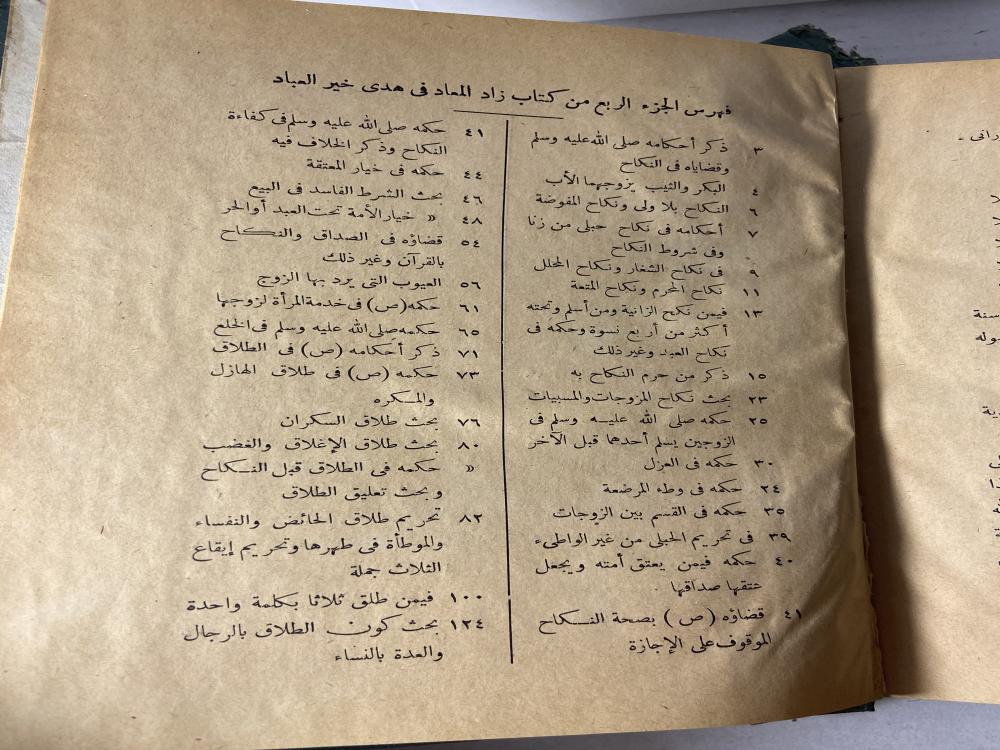 فهرس الجزء الرابع من كتاب زاد المعاد فى هدى خير العباد
٣ ذكر أحكامه صلى الله عليه وسلم
وقضاياه فى النكاح
٤ البكر والثيب يزوجهما الأب
٦ النكاح بلا ولى ونكاح المفوضة
٧ أحكامه فى نكاح حبلى من زنا
وفى شروط النكاح
٩ فى نكاح الشغار ونكاح المحلل
١١ نكاح المحرم ونكاح المتعة
١٣ فيمن نكح الزانية ومن أسلم وتحته
أكثر من أربع نسوة وحكمه فى
نكاح العبد وغير ذلك
١٥ ذكر من حرم النكاح به
٢٣ بحث نكاح المزوجات والمسبيات
٢٥ حكمه صلى الله عليه وسلم فى
الزوجين يسلم أحدهما قبل الآخر
٣٠ حكمه فى العزل
٢٤ حكمه فى وطء المرضعة
٣٥ حكمه فى القسم بين الزوجات
٣٩ فى تحريم الحبلى من غير الواطىء
٤٠ حكمه فيمن يعتق أمته ويجعل
عتقها صداقها
٤١ قضاؤه (ص) بصحة النكاح
الموقوف على الإجازة
٤١ حكمه صلى الله عليه وسلم فى كفاءة
النكاح وذكر الخلاف فيه
٤٤ حكمه فى خيار المعتقة
٤٦ بحث الشرط الفاسد فى البيع
٤٨ « خيار الأمة تحت العبد أو الحر
٥٤ قضاؤه فى الصداق والنكاح
بالقرآن وغير ذلك
٥٦ العيوب التى يرد بها الزوج
٦١ حكمه (ص) فى خدمة المرأة لزوجها
٦٥ حكمه صلى الله عليه وسلم فى الخلع
٧١ ذكر أحكامه (ص) فى الطلاق
٧٣ حكمه (ص) فى طلاق الهازل
والمكره
٧٦ بحث طلاق السكران
٨٠ بحث طلاق الإغلاق والغضب
« حكمه فى الطلاق قبل النكاح
وبحث تعليق الطلاق
٨٢ تحريم طلاق الحائض والنفساء
والموطأة فى طهرها وتحريم إيقاع
الثلاث جملة
١٠٠ فيمن طلق ثلاثا بكلمة واحدة
١٢٤ بحث كون الطلاق بالرجال
والعدة بالنساء